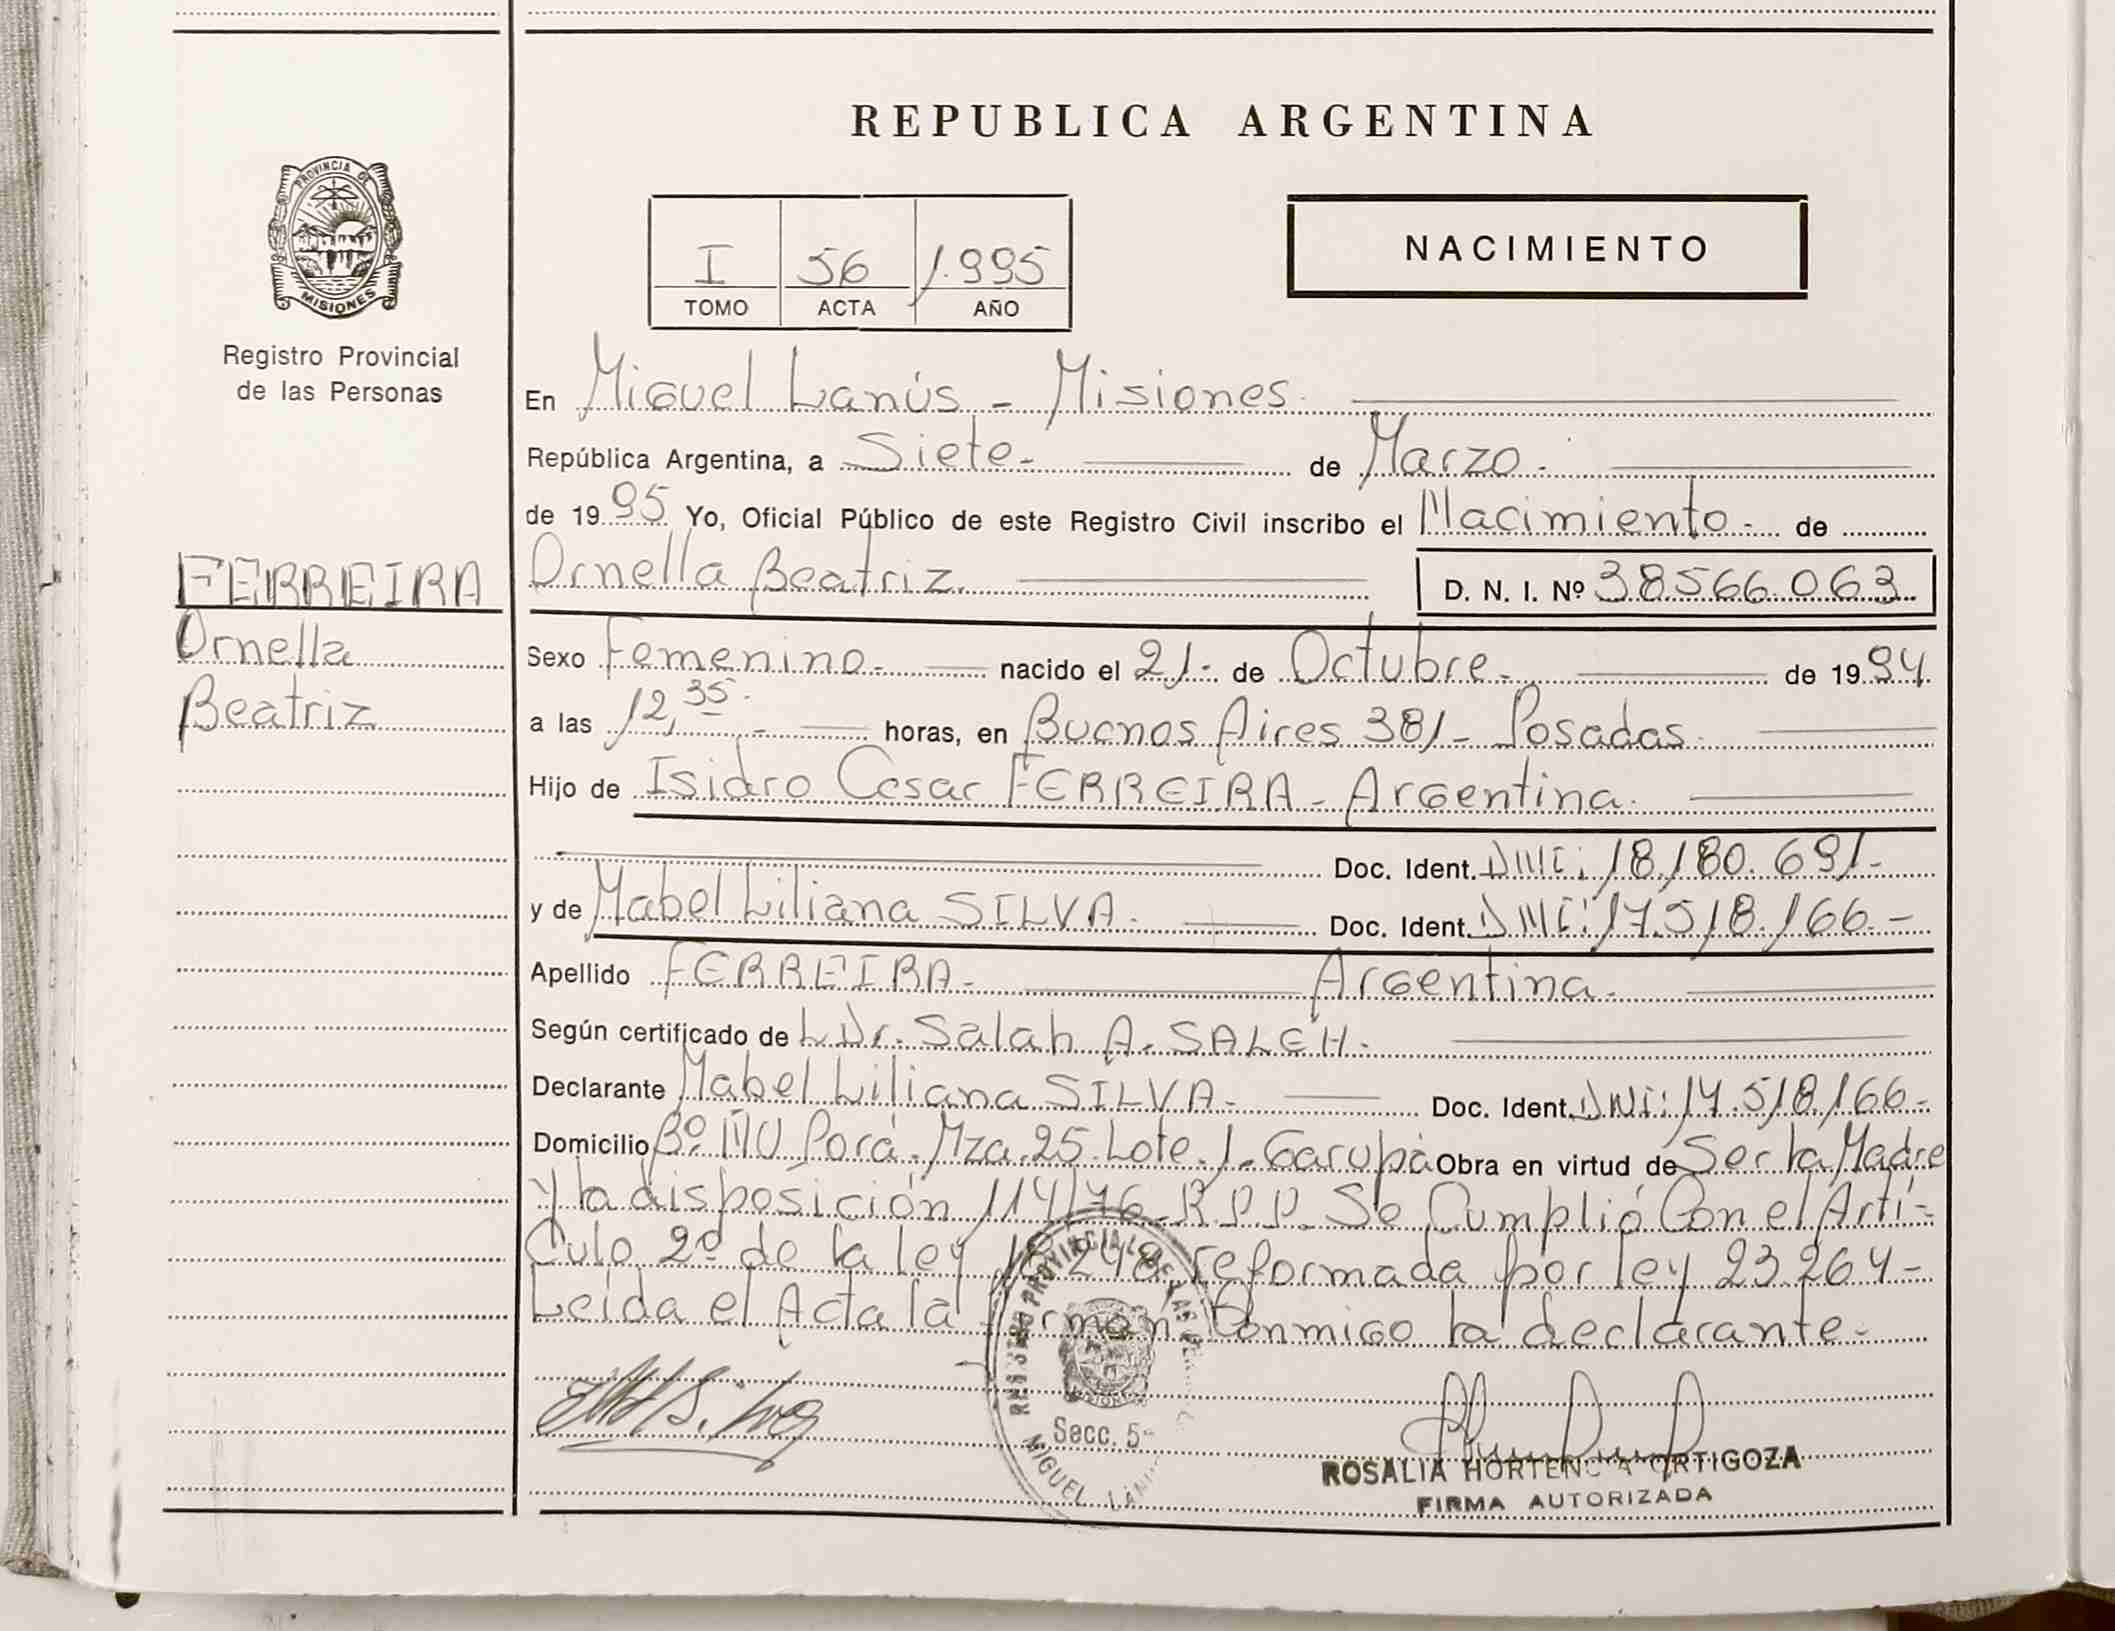 PROVINCIA DE
MISIONES
Registro Provincial
de las Personas
FERREIRA
Ornella
Beatriz
REPUBLICA ARGENTINA
I 56 1.995
TOMO ACTA AÑO
NACIMIENTO
En Miguel Lanús - Misiones.
República Argentina, a Siete.- de Marzo.-
de 1995. Yo, Oficial Público de este Registro Civil inscribo el Nacimiento.- de
Ornella Beatriz. D. N. I. Nº 38.566.063
Sexo Femenino.- nacido el 21.- de Octubre.- de 1994.
a las 12,35.- horas, en Buenos Aires 381- Posadas.
Hijo de Isidro Cesar FERREIRA - Argentina.
Doc. Ident. DNI: 18.180.691.-
y de Mabel Liliana SILVA.- Doc. Ident. DNI: 17.518.166.-
Apellido FERREIRA.- Argentina.-
Según certificado de L. Dr. Salah A. SALEH.-
Declarante Mabel Liliana SILVA.- Doc. Ident. DNI: 17.518.166.-
Domicilio Bº ÑU Porá. Mza. 25. Lote. 1- Garupá Obra en virtud de Ser la Madre
y la disposición 114/76- R.P.P. Se Cumplió Con el Artí-
Culo 2º de la ley 18.248 reformada por ley 23.264-
Leída el Acta la firman Conmigo la declarante.-
REGISTRO PROVINCIAL DE LAS
MISIONES
Secc. 5ª
MIGUEL LANÚS
ROSALIA HORTENCIA ORTIGOZA
FIRMA AUTORIZADA